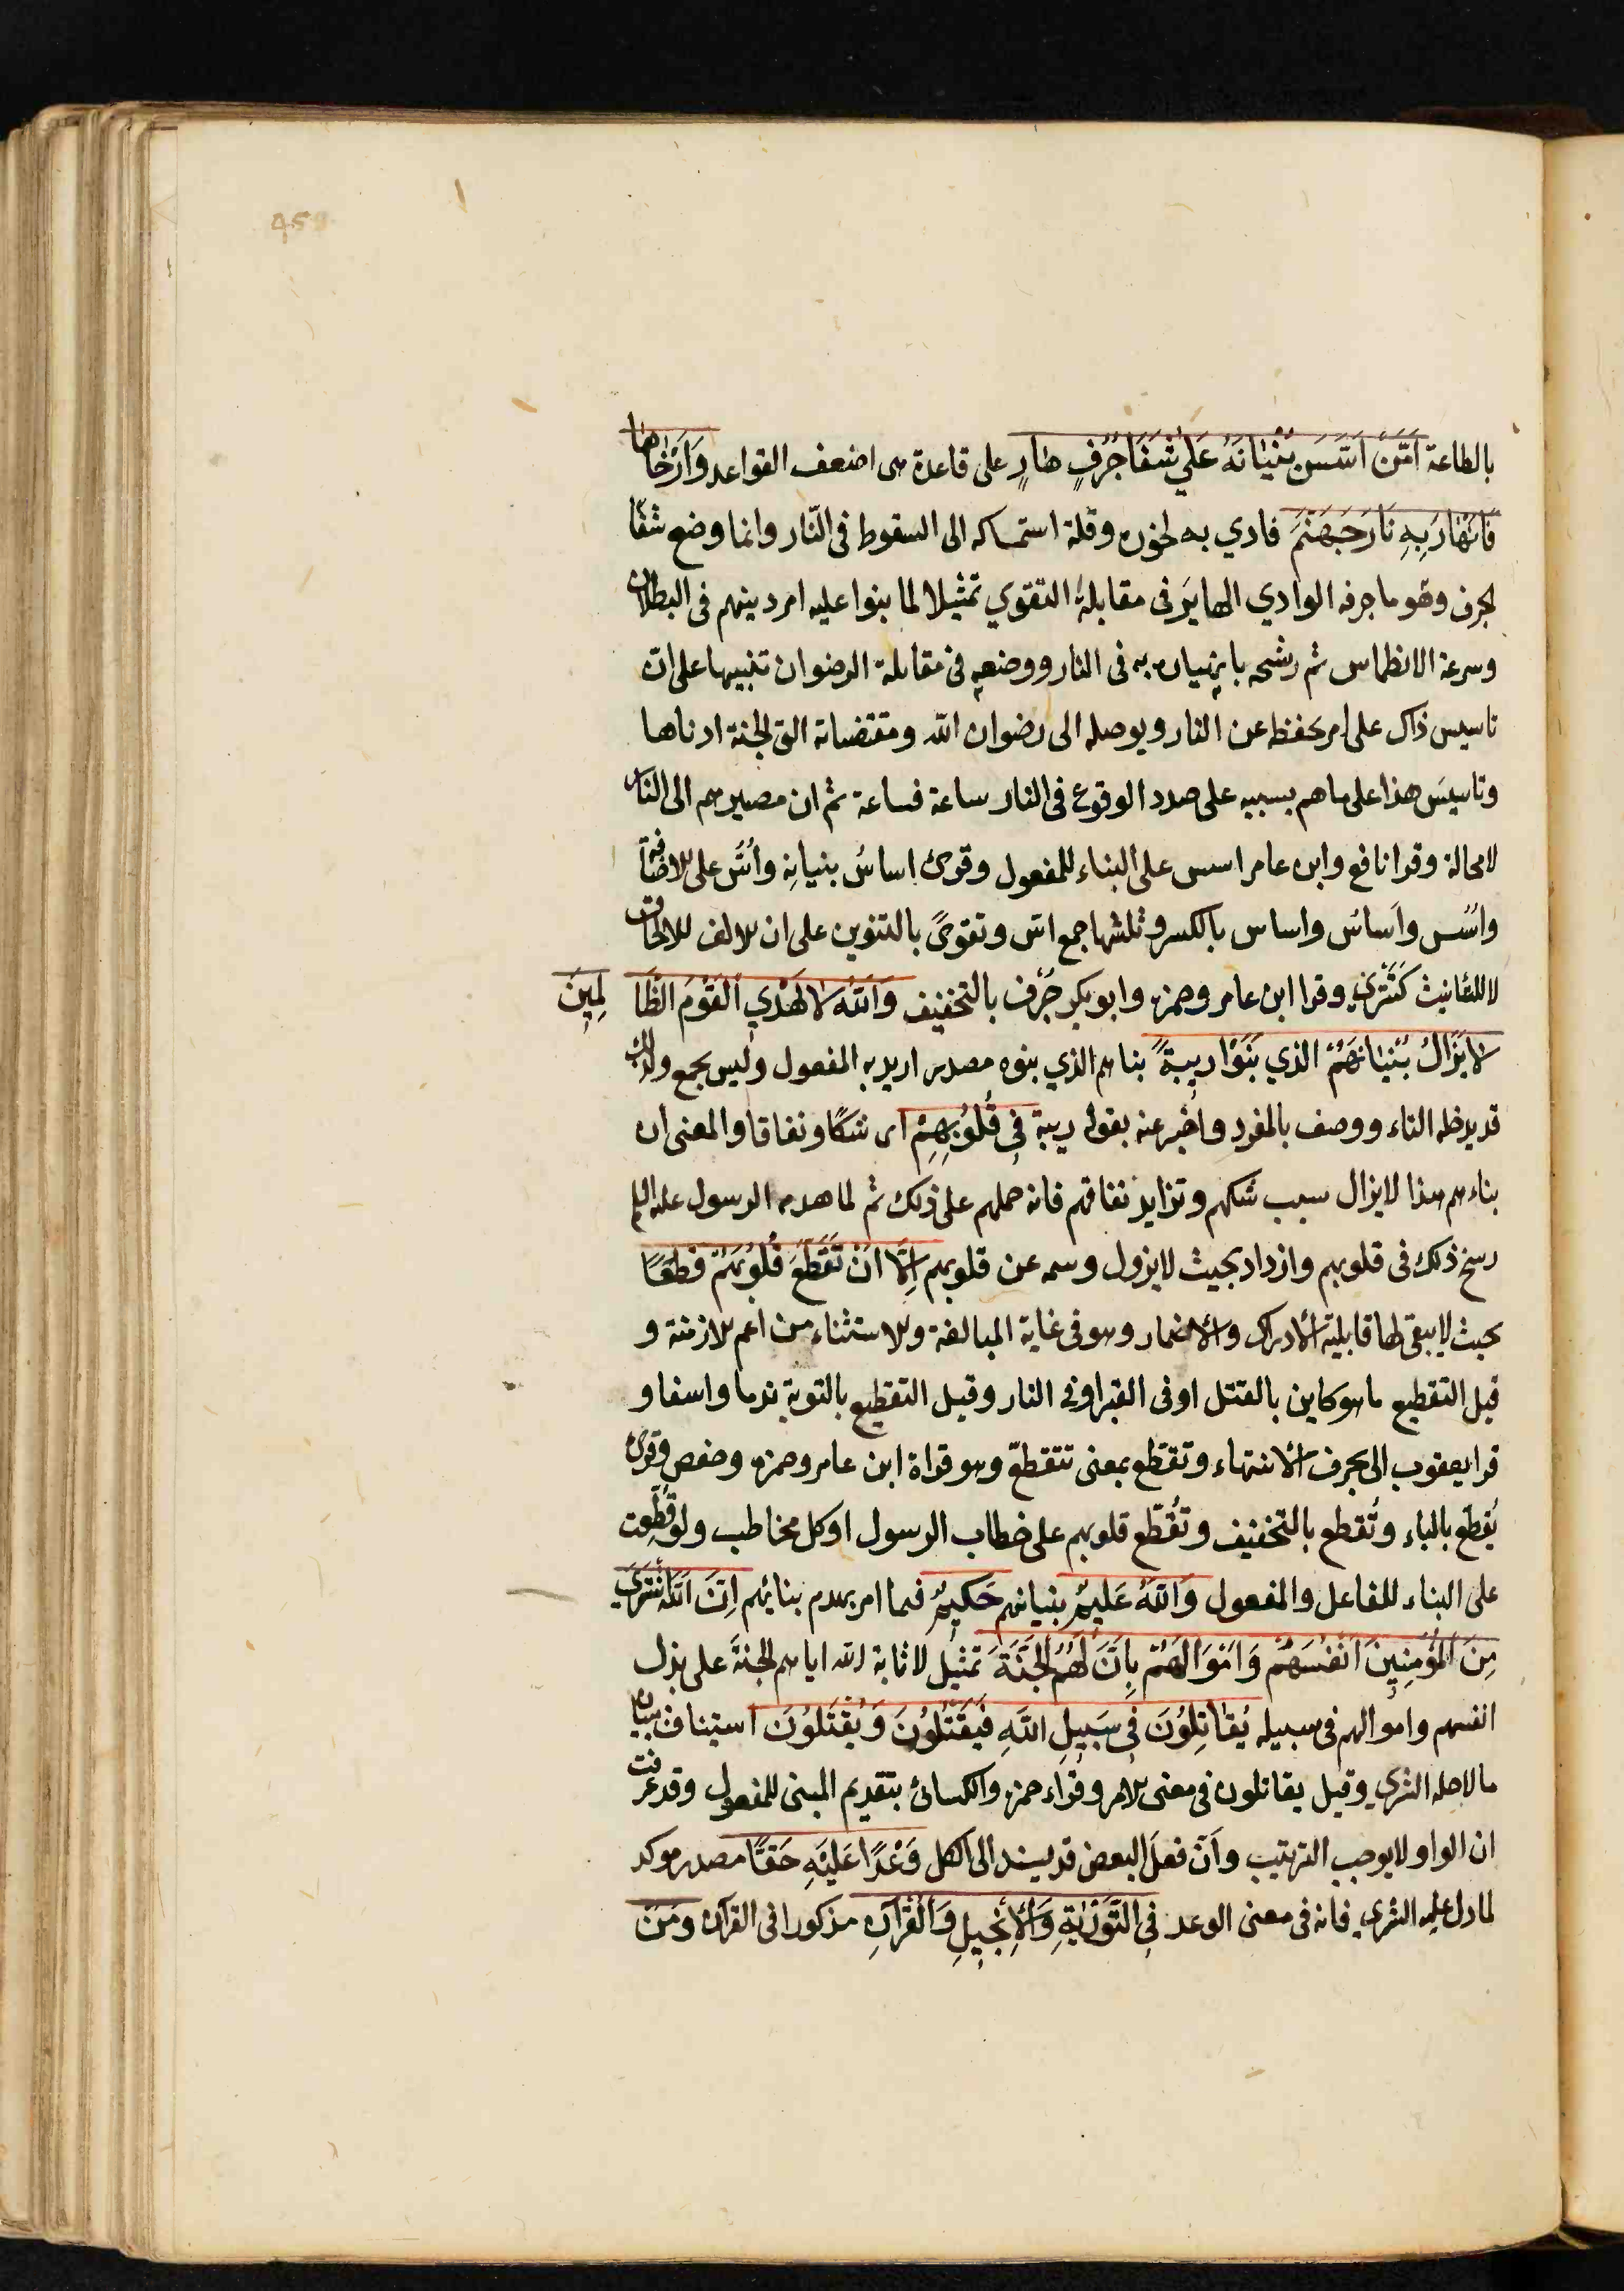 459
بالطاعة اَمَّنْ اَسَّسَ بُنْيٰانَهُ عَلٰي شَفَا جُرُفٍ هٰارٍ على قاعدة هى اضعف القواعد وَاَرْخٰاهٰا
فَانْهٰارَ بِهِ نٰارِ جَهَنَّمَ فادي به لخوره وقلة استمساكه الى السقوط فى النّار وانما وضع شفا
لجرف وهو ما جرفه الوادي الهاير فى مقابلة التقوي تمثيلا لما بنوا عليه امر دينهم فى البطلان
وسرعة الانطماس ثم رشحه بانهياره به فى النار ووضعه فى مقابلة الرضوان تنبيها على ان
تاسيس ذاك على امر يحفظه عن النار ويوصله الى رضوان الله ومقتضاته التى الجنة ادناها
وتاسيس هذا على ما هم بسببه على صدد الوقوع فى النار ساعة فساعة ثم ان مصيرهم الى النار
لا محالة وقرا نافع وابن عامر اسس على البناء للمفعول وقرئ اساسُ بنيانِه واُسُّ على الاضافة
واُسُس واَساسُ واساس بالكسر وثلثها جمع اسّ وتقوىً بالتنوين على ان الالف للالحاق
لا للتانيث كَتَتْرٰي وقرا ابن عامر وحمزه وابو بكر جُرْف بالتخفيف وَاللهُ لٰا يَهْدِي الْقَوْمَ الظّٰا لِمِينَ
لٰا يَزٰالُ بُنْيٰانُهُمُ الذي بَنَوْا رِيبةً بناهم الذي بنوه مصدر اريد به المفعول وليس بجمع ولذلك
قد يدخله التاء ووصف بالمفرد واخبر عنه بقوله ريبة فِي قُلُوبِهِمْ اى شكًا ونفاقا والمعنى ان
بناءهم هذا لا يزال سبب شكهم وتزايد نفاقهم فانه حملهم على ذلك ثم لما هدمه الرسول عليه السلم
رسخ ذلك فى قلوبهم وازداد بحيث لا يزول وسمه عن قلوبهم اِلّٰا اَنْ تَقَطَّعَ قُلُوبُهُمْ قطعًا
بحيث لا يبقى لها قابلية الادراك والاضمار وهو فى غاية المبالغة والاستثناء من اعم الازمنة و
قيل التقطيع ما هو كاين بالقتل او فى القبر او فى النار وقيل التقطيع بالتوبة ندما واسفا و
قرا يعقوب الى بحرف الانتهاء وتقطع بمعنى تتقطع وهو قراة ابن عامر وحمزه وحفص وقرئ
يُقطّع بالياء وتُقطع بالتخفيف وتُقطّع قلوبهم على خطاب الرسول او كل مخاطب ولو قُطِّعت
على البناء للفاعل والمفعول وَاللهُ عَلِيمٌ بنيانهم حَكِيمٌ فيما امر بهدم بنائهم اِنَّ اللهَ اشْتَرٰي
مِنَ الْمُؤْمِنِينَ اَنْفُسَهُمْ وَاَمْوٰالَهُمْ بِاَنَّ لَهُمُ الْجَنَّةَ تمثيل لاثابة الله اياهم الجنة على بذل
انفسهم واموالهم فى سبيله يُقٰاتِلُونَ فِي سَبِيلِ اللهِ فَيَقْتُلُونَ وَيُقْتَلُونَ استيناف ببيان
ما لاجله الشري وقيل يقاتلون فى معنى الامر وقراء حمزه والكسائى بتقديم المبنى للمفعول وقد عرفت
ان الواو لا يوجب الترتيب وَاَنّ فعلَ البعض قد يسند الى الكل وَعْدًا عَلَيْهِ حَقًّا مصدر موكد
لما دل عليه الشري فانه فى معنى الوعد فِي التَّوْرٰيةِ وَالْاِنْجِيلِ وَالْقُرْآنِ مذكورا فى القرآن وَمَنْ